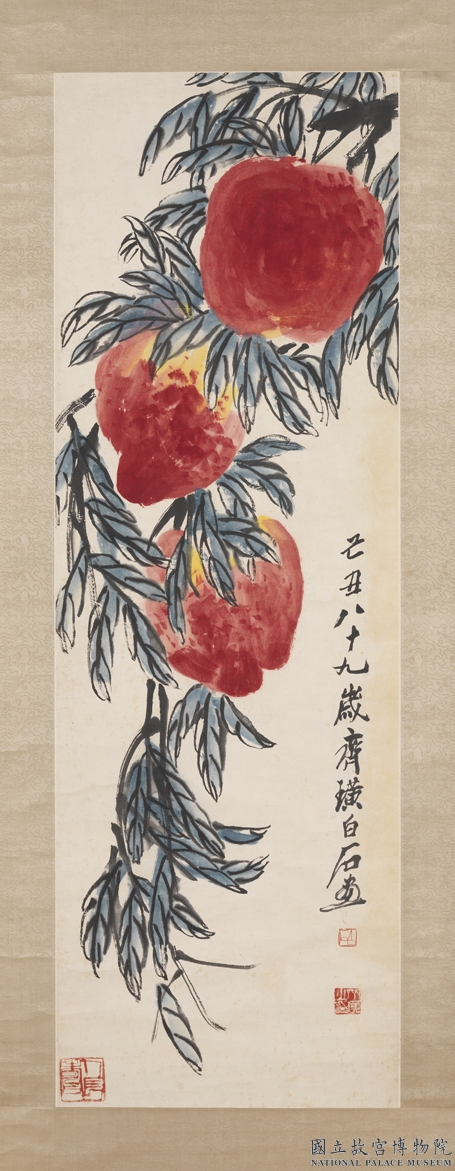 己丑八十九歲齊璜白石画
國立故宮博物院
NATIONAL PALACE MUSEUM